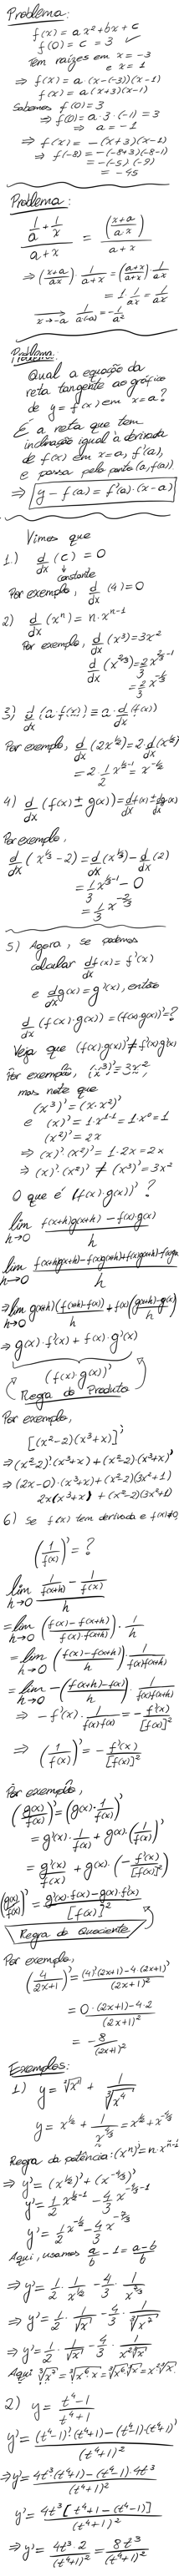 Problema:
f(x) = ax²+bx+c
f(0)=c = 3 ✓
Tem raízes em x = -3
e x = 1
⇒ f(x) = a (x-(-3))(x-1)
f(x) = a(x+3)(x-1)
Sabemos f(0)=3
⇒ f(0) = a·3·(-1) = 3
⇒ a = -1
⇒ f(x) = -(x+3)(x-1)
⇒ f(-8) = -(-8+3)(-8-1)
= -(-5)·(-9)
= -45
Problema:
(1/a + 1/x)/(a+x) = ((x+a)/(a·x))/(a+x)
⇒ ((x+a)/(ax))·1/(a+x) = ((a+x)/(a+x))·1/(ax)
= 1·1/(ax) = 1/(ax)
x→-a 1/(a(-a)) = -1/a²
Problema:
Qual a equação da
reta tangente ao gráfico
de y = f(x) em x=a?
É a reta que tem
inclinação igual à derivada
de f(x) em x=a, f'(a),
e passa pelo ponto (a, f(a))
⇒ y - f(a) = f'(a)·(x-a)
Vimos que
1.) d/dx (c) = 0
constante
Por exemplo, d/dx (4)=0
2) d/dx (xⁿ) = n·xⁿ⁻¹
Por exemplo, d/dx (x³)=3x²
d/dx (x^(2/3)) = 2/3 x^(2/3-1)
= 2/3 x^(-1/3)
3) d/dx (a·f(x)) = a·d/dx (f(x))
Por exemplo, d/dx (2x^(1/2)) = 2·d/dx (x^(1/2))
= 2·1/2 x^(1/2-1) = x^(-1/2)
4) d/dx (f(x) ± g(x)) = d/dx f(x) ± d/dx g(x)
Por exemplo,
d/dx (x^(1/3) - 2) = d/dx (x^(1/3)) - d/dx (2)
= 1/3 x^(1/3-1) - 0
= 1/3 x^(-2/3)
5) Agora, se podemos
calcular d/dx f(x) = f'(x)
e d/dx g(x) = g'(x), então
d/dx (f(x)·g(x)) = (f(x)·g(x))' = ?
Veja que (f(x)·g(x))' ≠ f'(x)·g'(x)
Por exemplo, (x³)' = 3x²
mas note que
(x³)' = (x·x²)'
e (x)' = 1·x¹⁻¹ = 1·x⁰ = 1
(x²)' = 2x
⇒ (x)'·(x²)' = 1·2x = 2x
⇒ (x)'·(x²)' ≠ (x³)' = 3x²
O que é (f(x)·g(x))' ?
lim h→0 (f(x+h)g(x+h) - f(x)·g(x))/h
lim h→0 (f(x+h)g(x+h)-f(x)g(x+h)+f(x)g(x+h)-f(x)g(x))/h
⇒ lim h→0 g(x+h)((f(x+h)-f(x))/h) + f(x)((g(x+h)-g(x))/h)
⇒ g(x)·f'(x) + f(x)·g'(x)
(f(x)·g(x))'
Regra do Produto
Por exemplo,
[(x²-2)(x³+x)]'
⇒ (x²-2)'·(x³+x) + (x²-2)·(x³+x)'
⇒ (2x-0)·(x³+x) + (x²-2)(3x²+1)
2x(x³+x) + (x²-2)(3x²+1)
6) Se f(x) tem derivada e f(x)≠0,
(1/f(x))' = ?
lim h→0 (1/f(x+h) - 1/f(x))/h
= lim h→0 ((f(x)-f(x+h))/(f(x)·f(x+h)))·1/h
= lim h→0 ((f(x)-f(x+h))/h)·1/(f(x)f(x+h))
= lim h→0 -((f(x+h)-f(x))/h)·1/(f(x)f(x+h))
⇒ -f'(x)·1/(f(x)f(x)) = -f'(x)/[f(x)]²
⇒ (1/f(x))' = -f'(x)/[f(x)]²
Por exemplo,
(g(x)/f(x))' = (g(x)·1/f(x))'
= g'(x)·1/f(x) + g(x)·(1/f(x))'
= g'(x)/f(x) + g(x)·(-f'(x)/[f(x)]²)
(g(x)/f(x))' = (g'(x)·f(x)-g(x)·f'(x))/[f(x)]²
Regra do Quociente
Por exemplo,
(4/(2x+1))' = ((4)'(2x+1)-4·(2x+1)')/(2x+1)²
= (0·(2x+1)-4·2)/(2x+1)²
= -8/(2x+1)²
Exemplos:
1) y = ²√x¹ + 1/³√x⁴
y = x^(1/2) + 1/x^(4/3) = x^(1/2)+x^(-4/3)
Regra da potência: (xⁿ)' = n·xⁿ⁻¹
⇒ y' = (x^(1/2))' + (x^(-4/3))'
y' = 1/2 x^(1/2-1) - 4/3 x^(-4/3-1)
y' = 1/2 x^(-1/2) - 4/3 x^(-7/3)
Aqui, usamos a/b - 1 = (a-b)/b
⇒ y' = 1/2·1/x^(1/2) - 4/3·1/x^(7/3)
⇒ y' = 1/2·1/√x¹ - 4/3·1/³√x⁷
⇒ y' = 1/2·1/√x¹ - 4/3·1/(x²·³√x¹)
Aqui ³√x⁷ = ³√x⁶·x = ³√x⁶·³√x = x²·³√x.
2) y = (t⁴-1)/(t⁴+1)
y' = ((t⁴-1)'(t⁴+1)-(t⁴-1)·(t⁴+1)')/(t⁴+1)²
⇒ y' = (4t³·(t⁴+1)-(t⁴-1)·4t³)/(t⁴+1)²
y' = 4t³[t⁴+1-(t⁴-1)]/(t⁴+1)²
⇒ y' = 4t³·2/(t⁴+1)² = 8t³/(t⁴+1)²